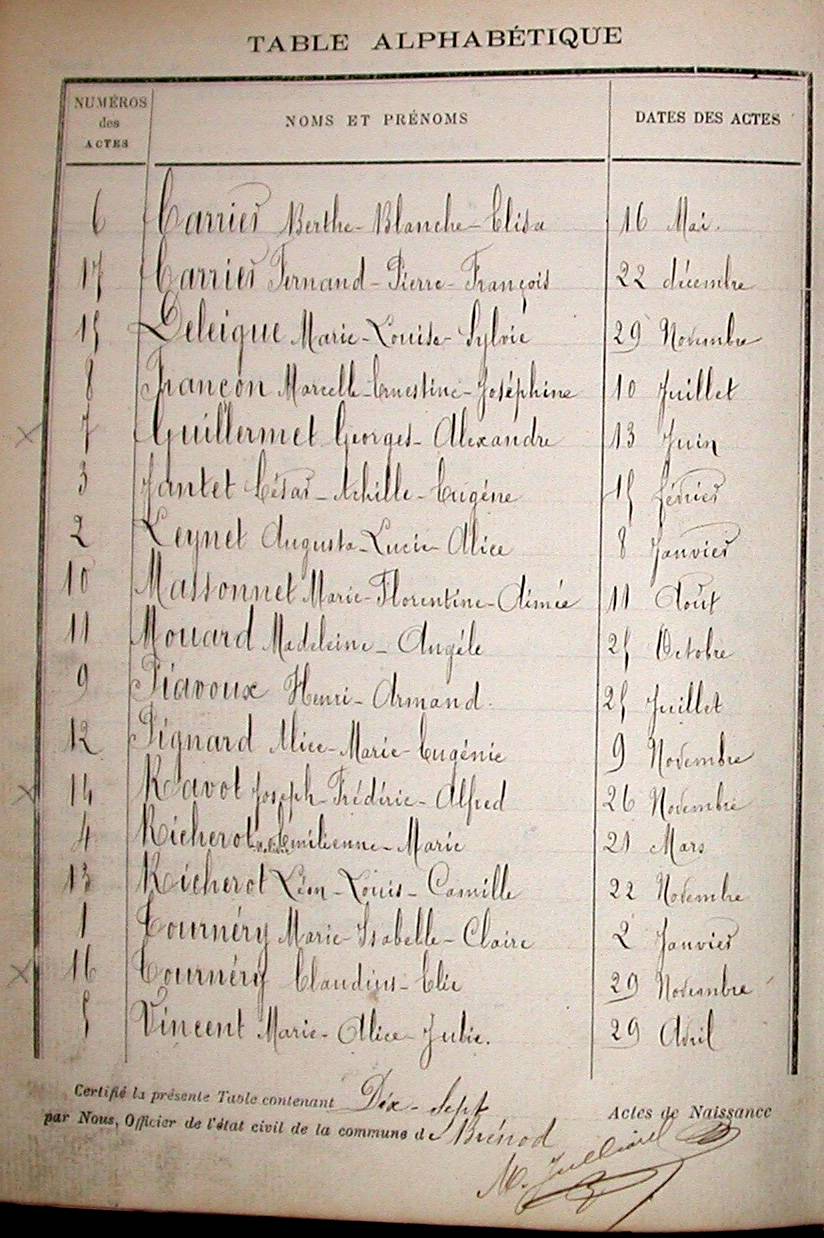 TABLE ALPHABÉTIQUE
NUMÉROS des ACTES NOMS ET PRÉNOMS DATES DES ACTES
6 Carrier Berthe-Blanche-Elisa 16 Mai.
17 Carrier Fernand-Pierre-François 22 décembre
15 Deleigue Marie-Louise-Sylvie 29 Novembre
8 Françon Marcelle-Ernestine-Joséphine 10 Juillet
7 Guillermet Georges-Alexandre 13 Juin
3 Jantet César-Achille-Eugène 15 février
2 Leynet Augusta-Lucie-Alice 8 Janvier
10 Massonnet Marie-Florentine-Aimée 11 Août
11 Mouard Madeleine-Angéle 25 Octobre
9 Piavoux Henri-Armand. 25 Juillet
12 Pignard Alice-Marie-Eugénie 9 Novembre
14 Ravot Joseph-Frédéric-Alfred 26 Novembre
4 Richerot Emilienne-Marie 21 Mars
13 Richerot Léon-Louis-Camille 22 Novembre
1 Tournéry Marie-Isabelle-Claire 2 Janvier
16 Tournéry Claudius-Elie 29 Novembre
5 Vincent Marie-Alice-Julie. 29 Avril
Certifié la présente Table contenant Dix-Sept Actes de Naissance
par Nous, Officier de l'état civil de la commune de Brénod
M. Juilliard